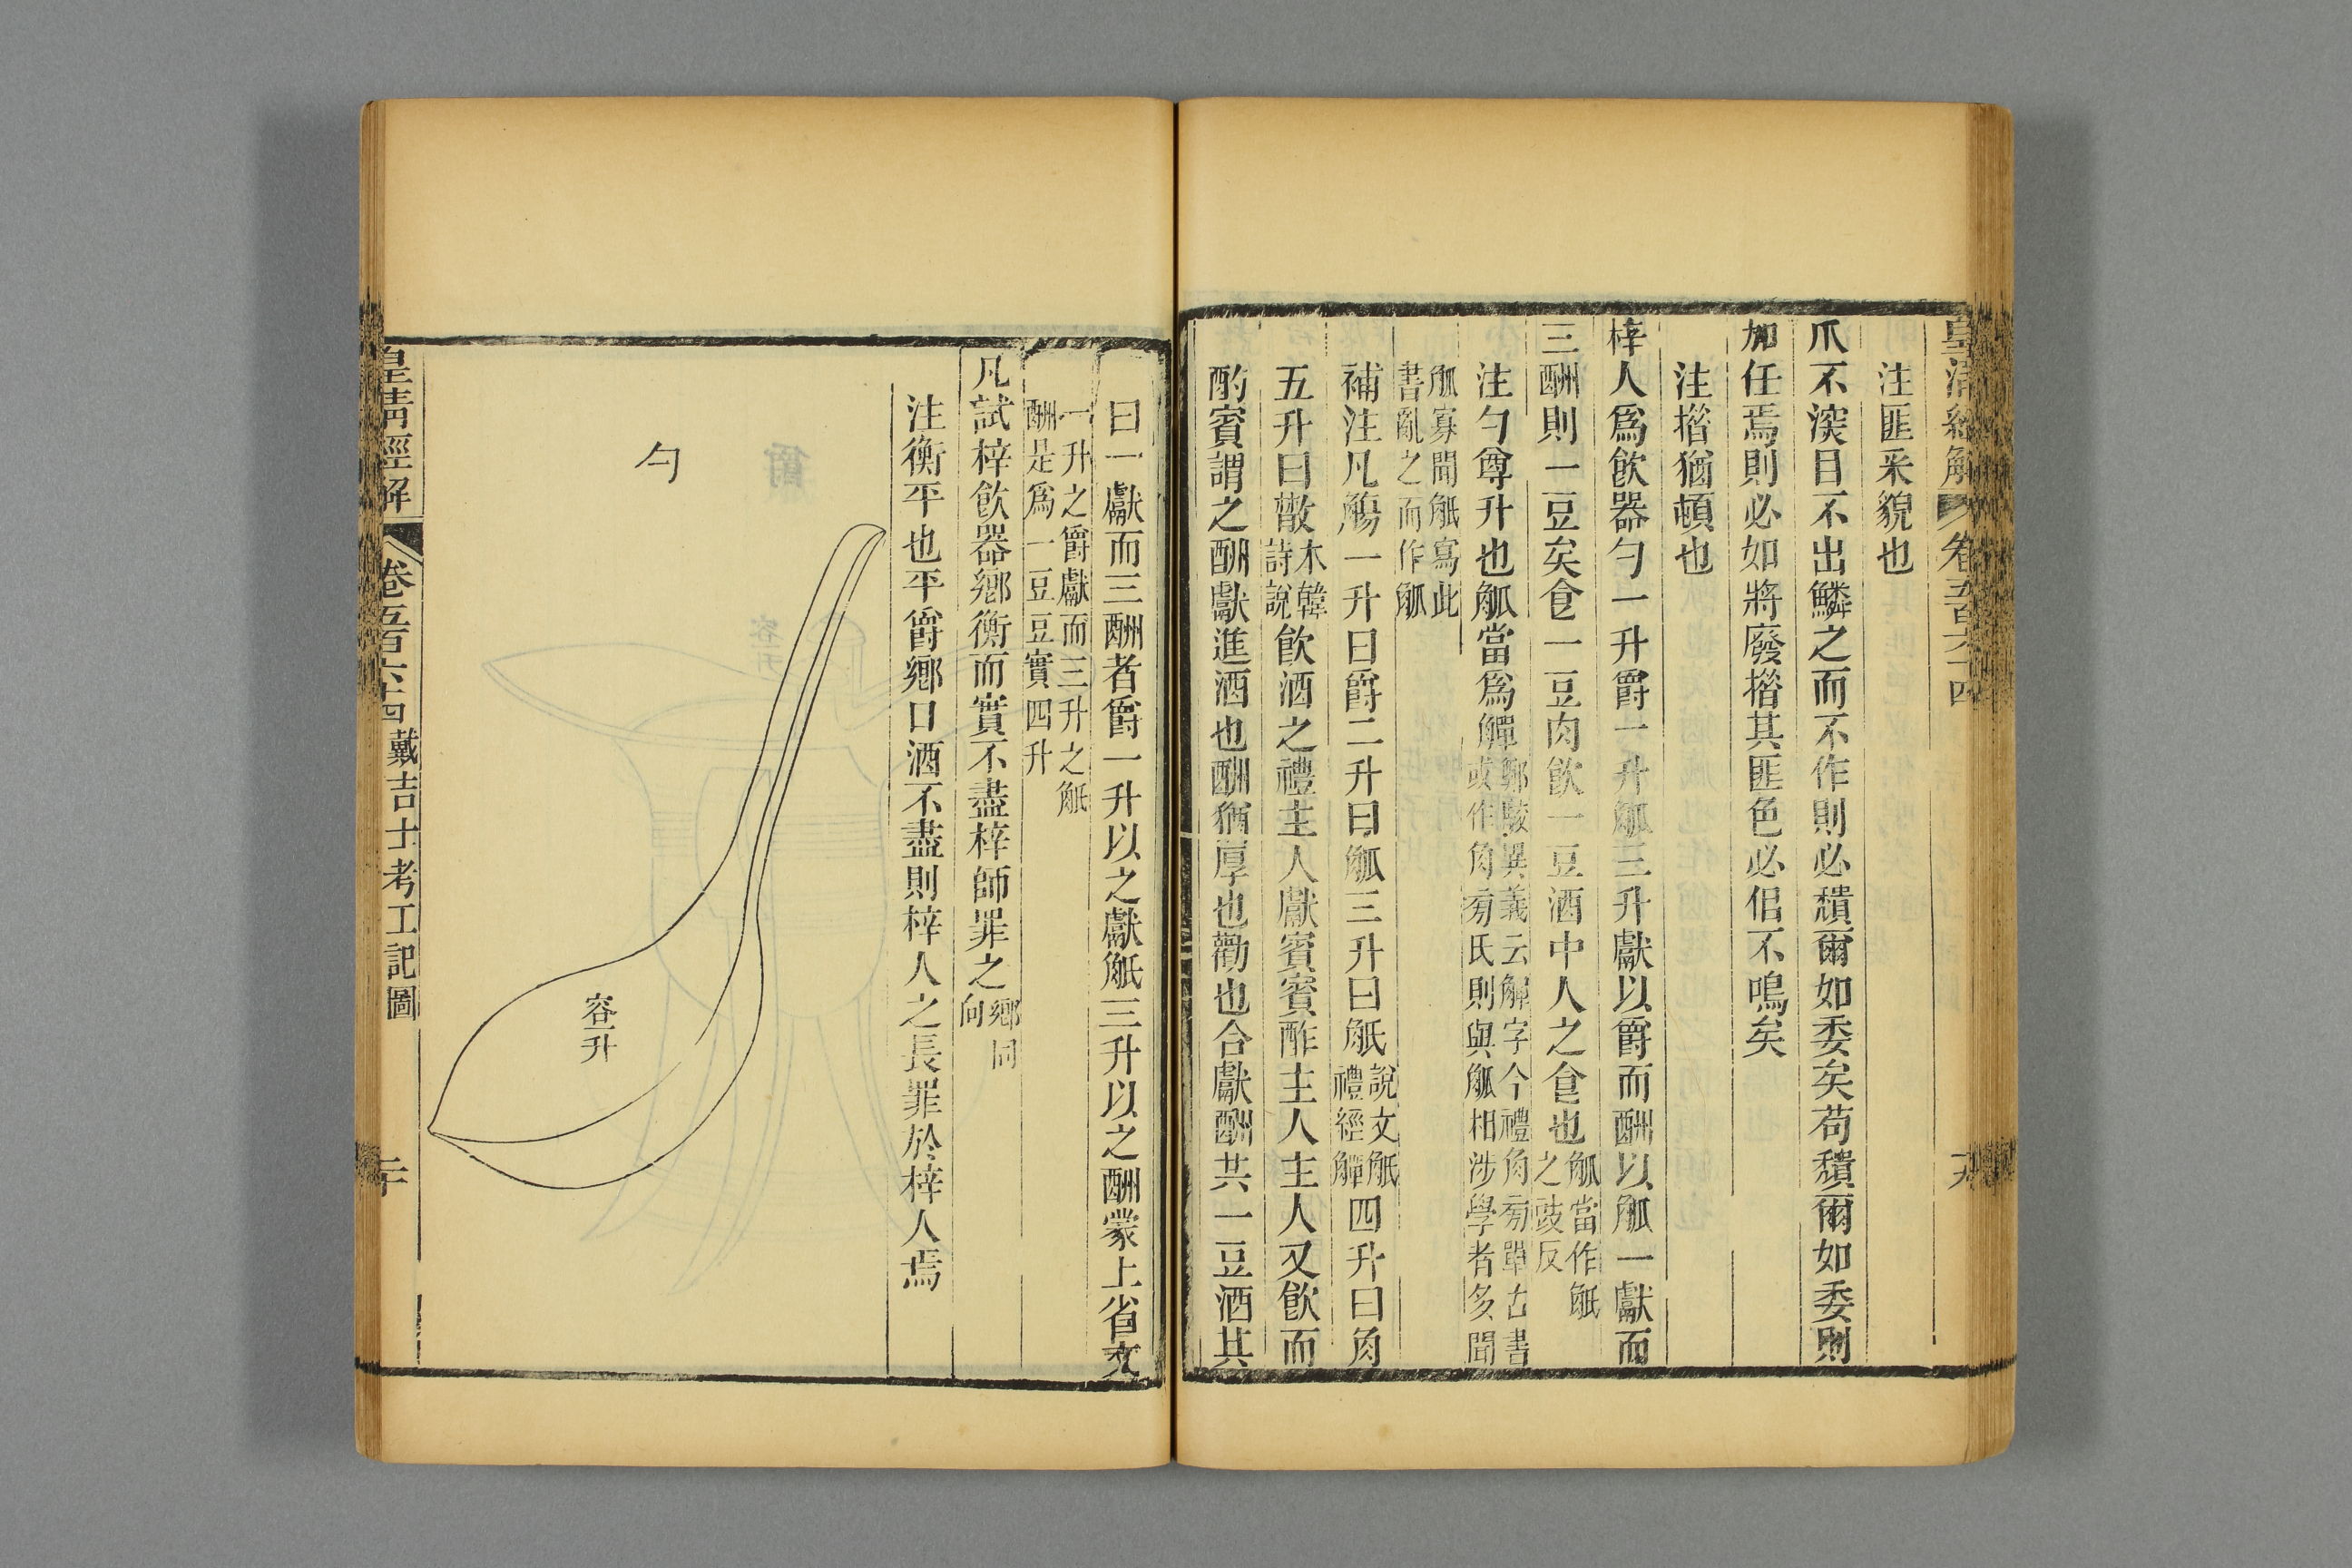 皇清經解 卷五百六十四
注匪采貌也
爪不深目不出鱗之而不作則必穨爾如委矣苟穨爾如委則
加任焉則必如將廢措其匪色必侣不鳴矣
注措猶頓也
梓人爲飮器勺一升爵一升觚三升獻以爵而酬以觚一獻而
三酬則一豆矣食一豆肉飮一豆酒中人之食也觚當作觗
之豉反
注勺尊升也觚當爲觶鄭駮異義云觶字今禮角㫄單古書
或作角㫄氏則與觚相涉學者多聞
觚寡聞觗寫此
書亂之而作觚
補注凡觴一升曰爵二升曰觚三升曰觗說文觗
禮經觶四升曰角
五升曰散本韓
詩說飮酒之禮主人獻賓賓酢主人主人又飮而
酌賓謂之酬獻進酒也酬猶厚也勸也合獻酬共一豆酒其
曰一獻而三酬者爵一升以之獻觗三升以之酬蒙上省文
一升之爵獻而三升之觗
酬是爲一豆豆實四升
凡試梓飮器鄉衡而實不盡梓師罪之鄉同
向
注衡平也平爵鄉口酒不盡則梓人之長罪於梓人焉
勺
容一升
皇清經解 卷五百六十四 戴吉士考工記圖 二十